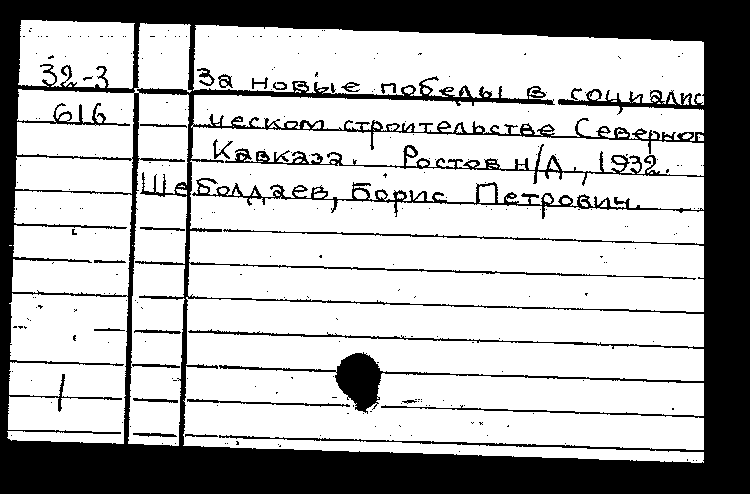 32-3 За новые победы в социалис
616 ческом строительстве Северног
Кавказа. Ростов н/Д., 1932.
Шеболдаев, Борис Петрович.